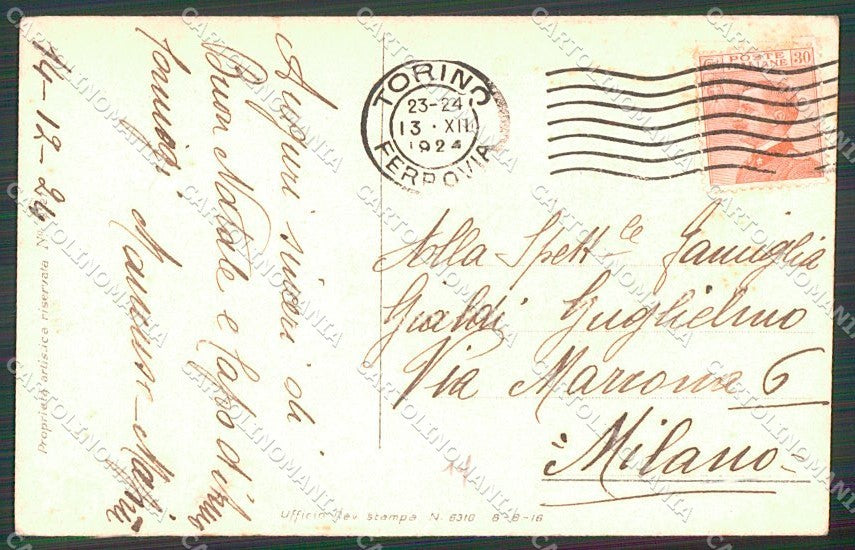 Auguri sinceri di
Buon Natale e Capo d'Anno
14-12-24
TORINO
23-24
13 · XII
1924
FERROVIA
POSTE
30
Alla Spett.le Famiglia
Gialdi Guglielmo
Via 6
Milano
Proprietà artistica riservata
Ufficio Rev. Stampa N. 6310 6-8-16
CARTOLINOMANIA